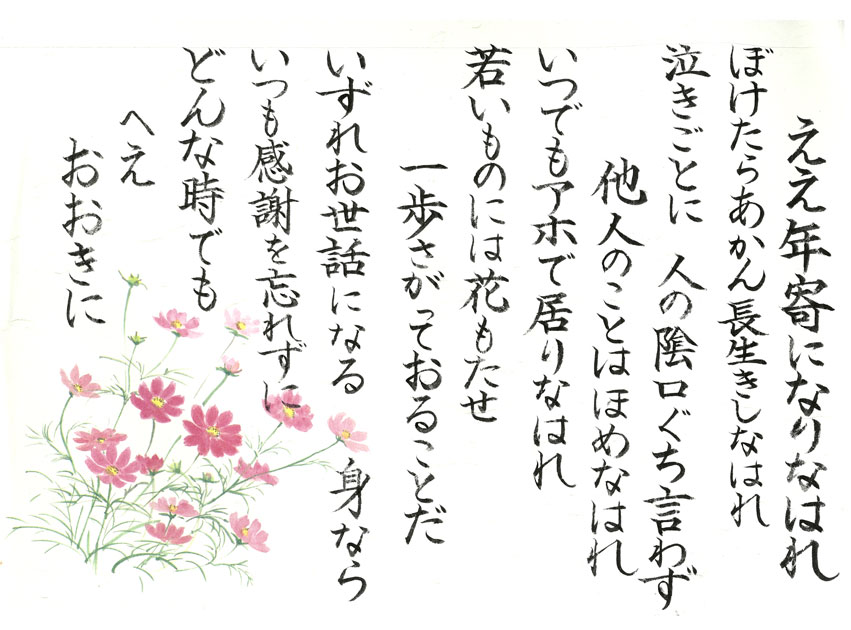 ええ年寄になりなはれ
ぼけたらあかん長生きしなはれ
泣きごとに 人の陰口ぐち言わず
他人のことはほめなはれ
いつでもアホで居りなはれ
若いものには花もたせ
一歩さがっておることだ
いずれお世話になる 身なら
いつも感謝を忘れずに
どんな時でも
へえ
おおきに